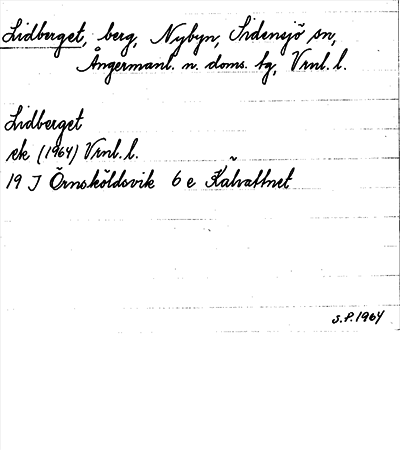 Lidberget, berg, Nybyn, Sidensjö sn,
Ångermanl. n. doms. tg, Vrnl. l.
Lidberget
ek (1964) Vrnl. l.
19 J Örnsköldsvik 6 e Kälvattnet
S.P. 1964